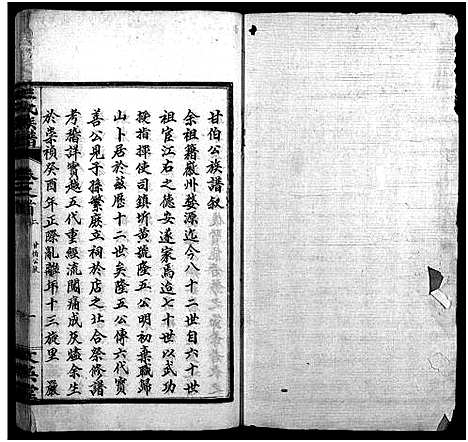 甘伯公族譜叙
余祖籍徽州婺源迄今八十二世自六十世
祖宦江右之德安遂家焉造七十世以武功
授指揮使司鎮圻黃號隆五公明初棄職歸
山卜居於茲歷十二世矣隆五公傳六代實
善公見子孫繁庶立祠於店之北合祭修譜
考稽詳實越五代重經流闖痛成灰燼余生
於崇禎癸酉年正際亂離年十三旋里
族譜
甘伯公叙